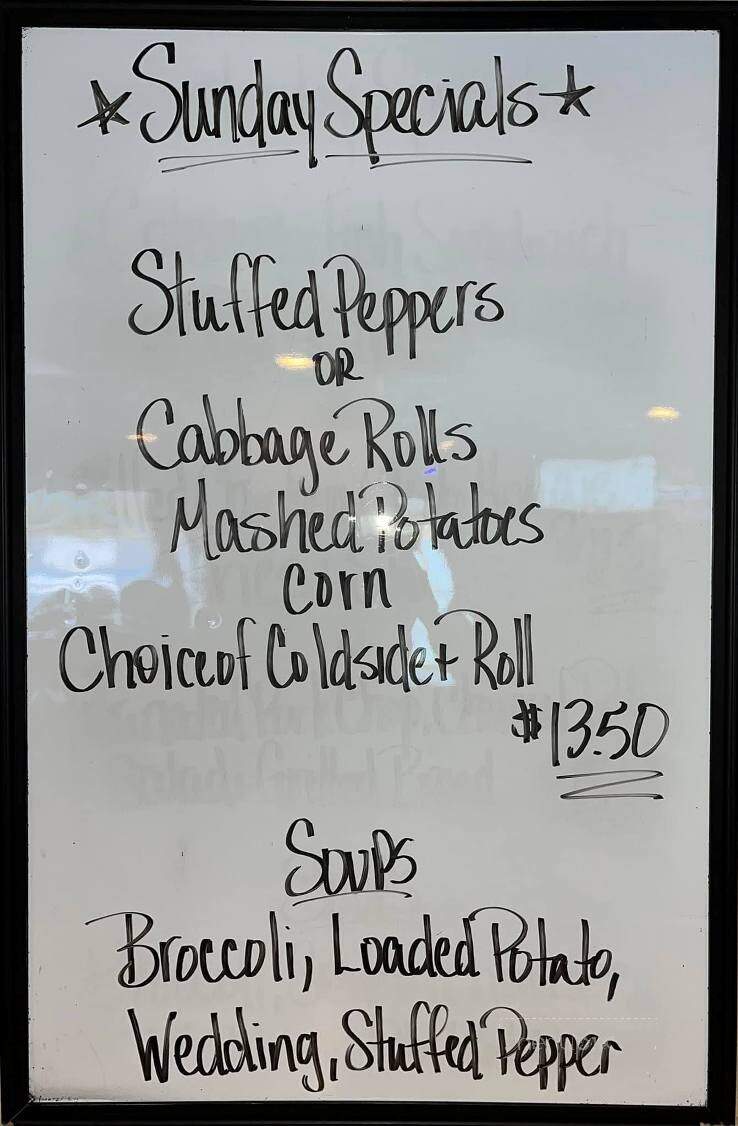 ★ Sunday Specials ★
Stuffed Peppers
OR
Cabbage Rolls
Mashed Potatoes
Corn
Choice of Coldside + Roll
$13.50
Soups
Broccoli, Loaded Potato,
Wedding, Stuffed Pepper